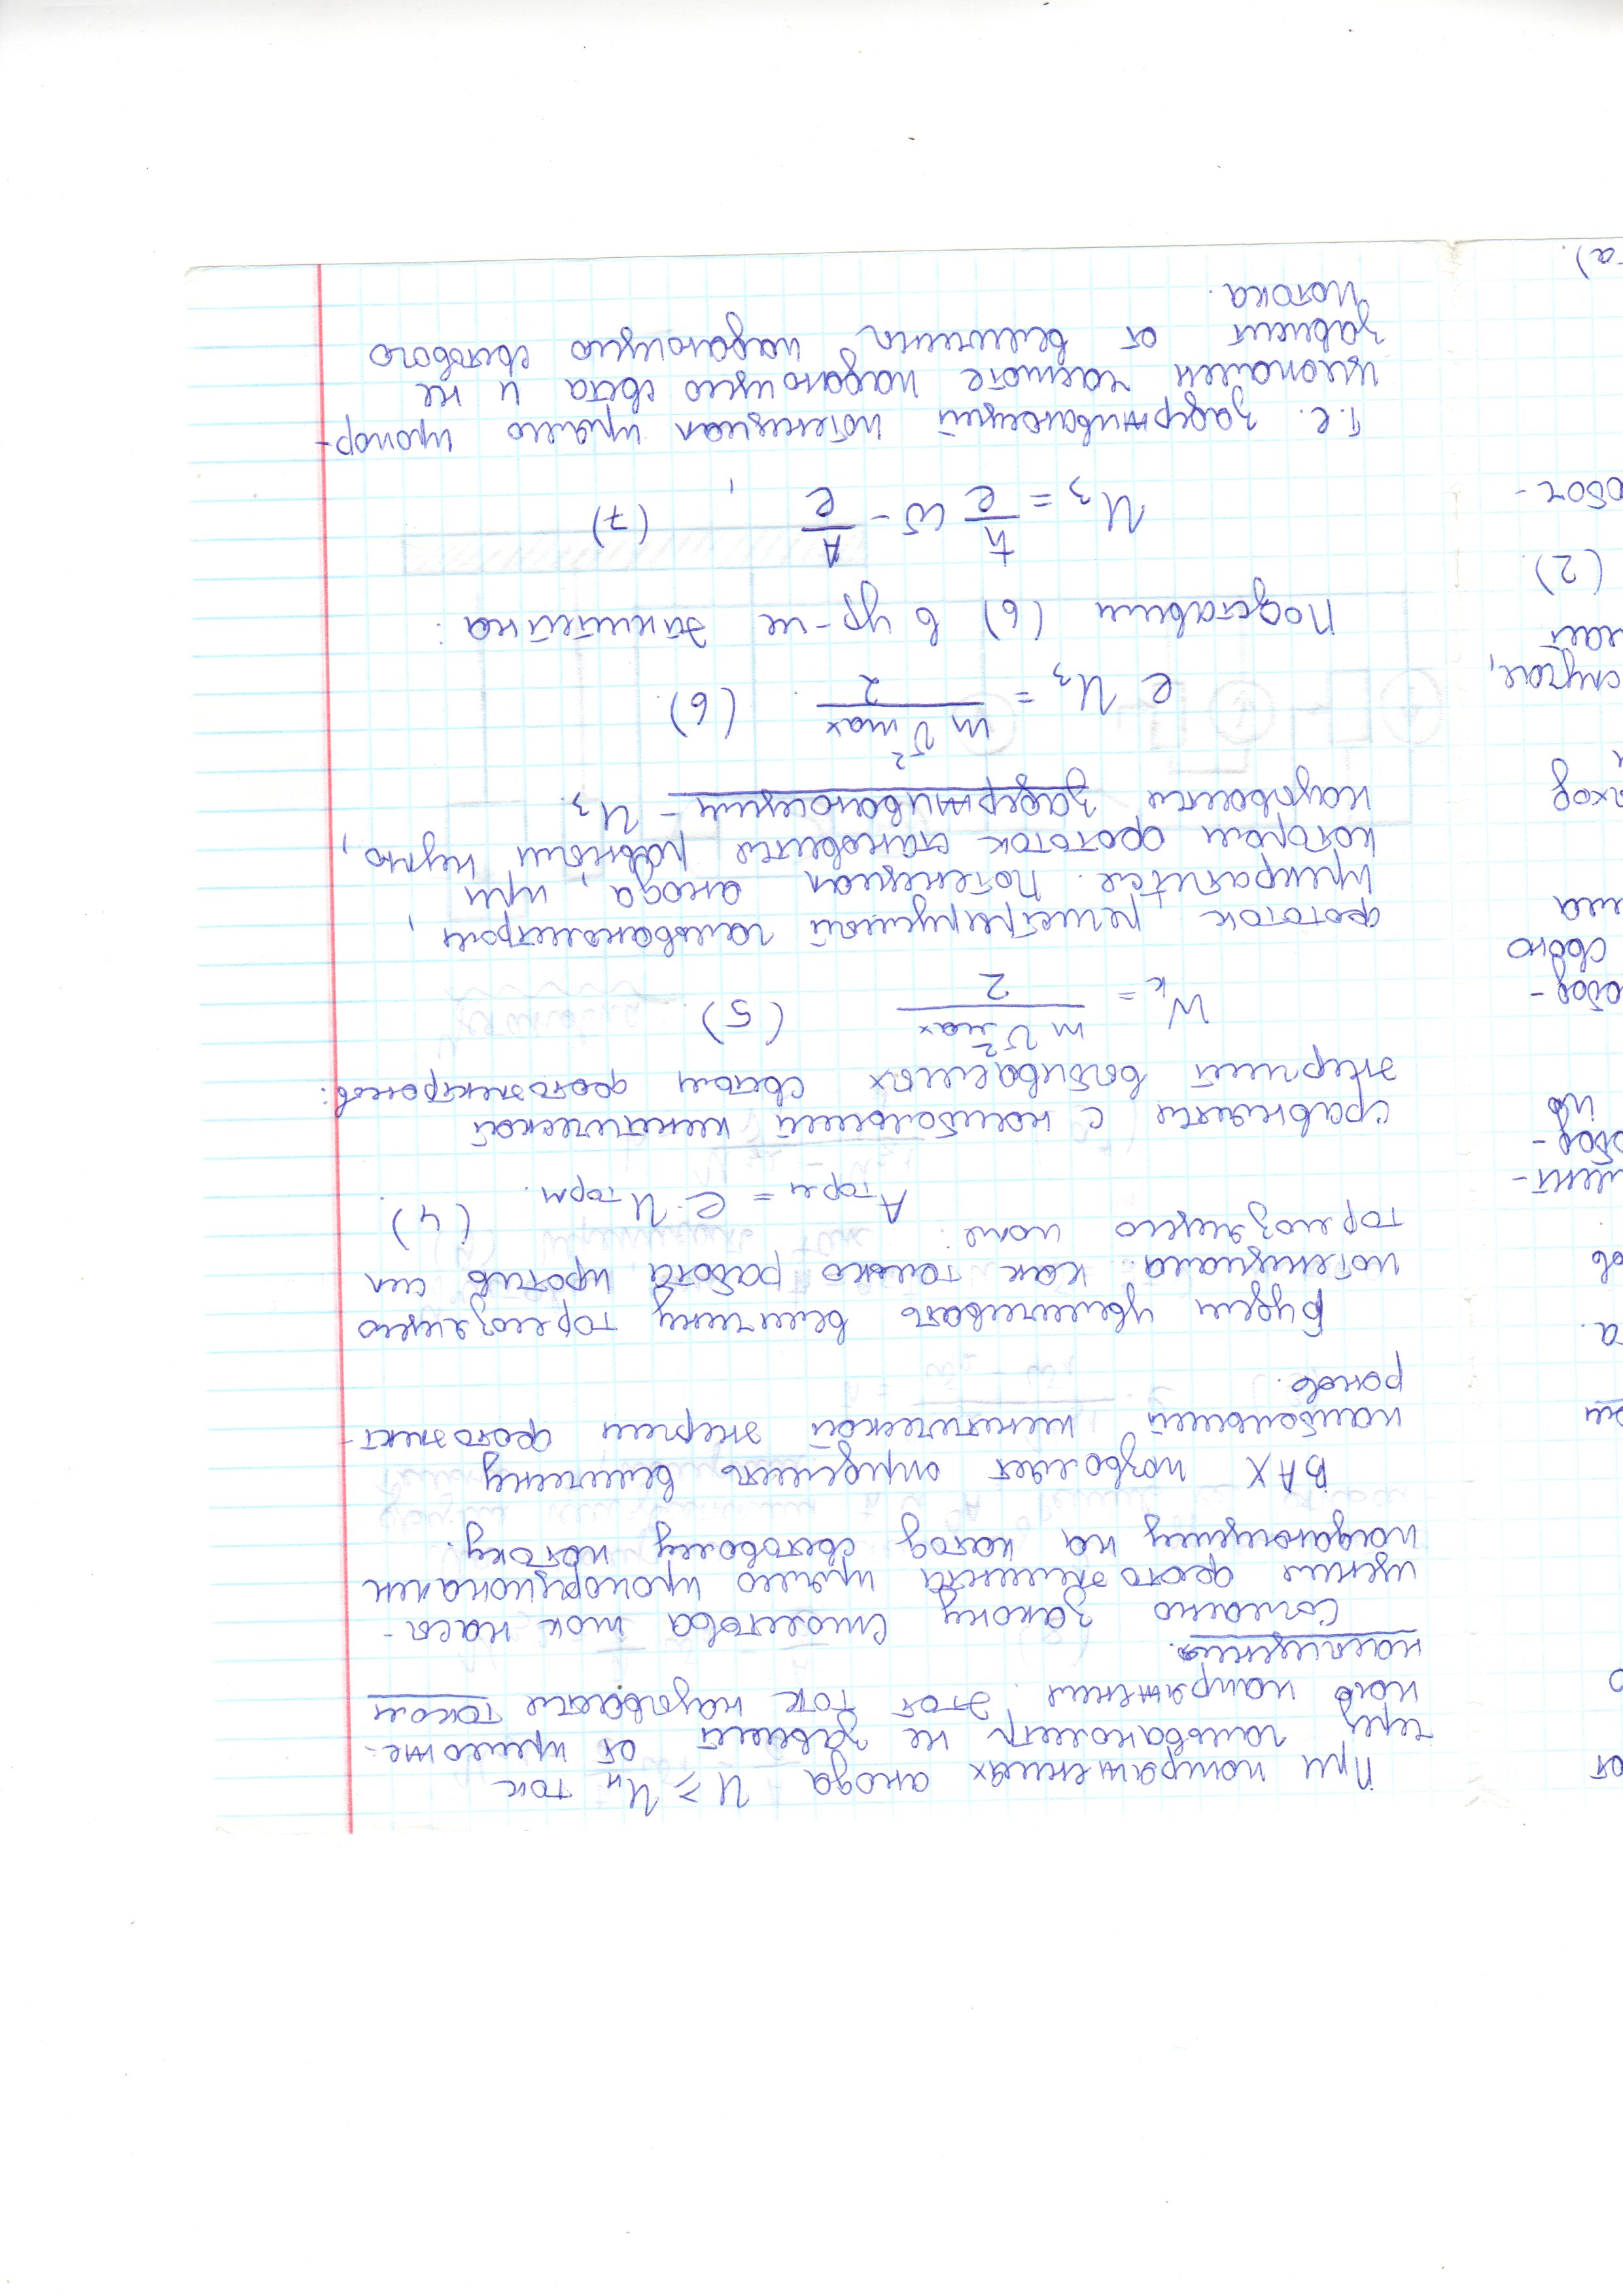 При напряжениях анода U ≥ Uн ток
через гальванометр не зависит от приложе-
ного напряжения. Этот ток называется током
насыщения.
Согласно закону Столетова ток насы-
щения фотоэлемента прямо пропорционален
падающему на катод световому потоку.
ВАХ позволяет определить величину
наибольшей кинетической энергии фотоэлект-
ронов.
Будем увеличивать величину тормозящего
потенциала. Как только работа против сил
тормозящего поля:
Aторм = e · Uторм. (4).
сравняется с наибольшей кинетической
энергией выбиваемых светом фотоэлектронов:
Wк = mV²max / 2 (5).
фототок, регистрируемый гальванометром,
прекратится. Потенциал анода, при
котором фототок становится равным нулю,
называется задерживающим – Uз.
e Uз = mV²max / 2. (6).
Подставим (6) в ур-ие Эйнштейна:
Uз = ħ/e ω – A/e, (7)
т.е. задерживающий потенциал прямо пропор-
ционален частоте падающего света и не
зависит от величины падающего светового
потока.
от
о
ом
та.
ов
лент-
обод-
по
обод-
свою
ила
ыход
случая,
лает
(2).
обоч-
та).